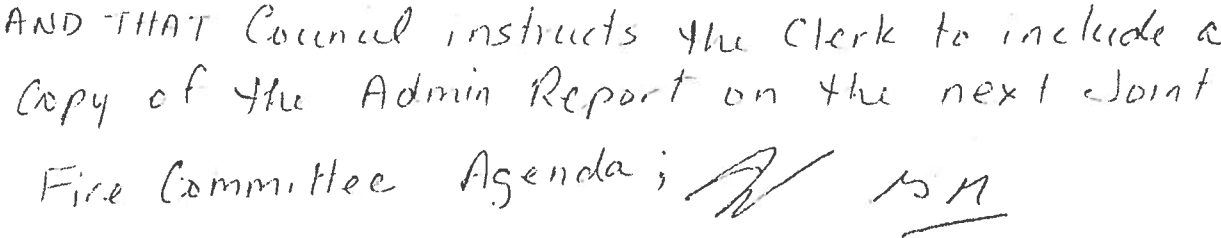 AND THAT Council instructs the Clerk to include a
Copy of the Admin Report on the next Joint
Fire Committee Agenda;